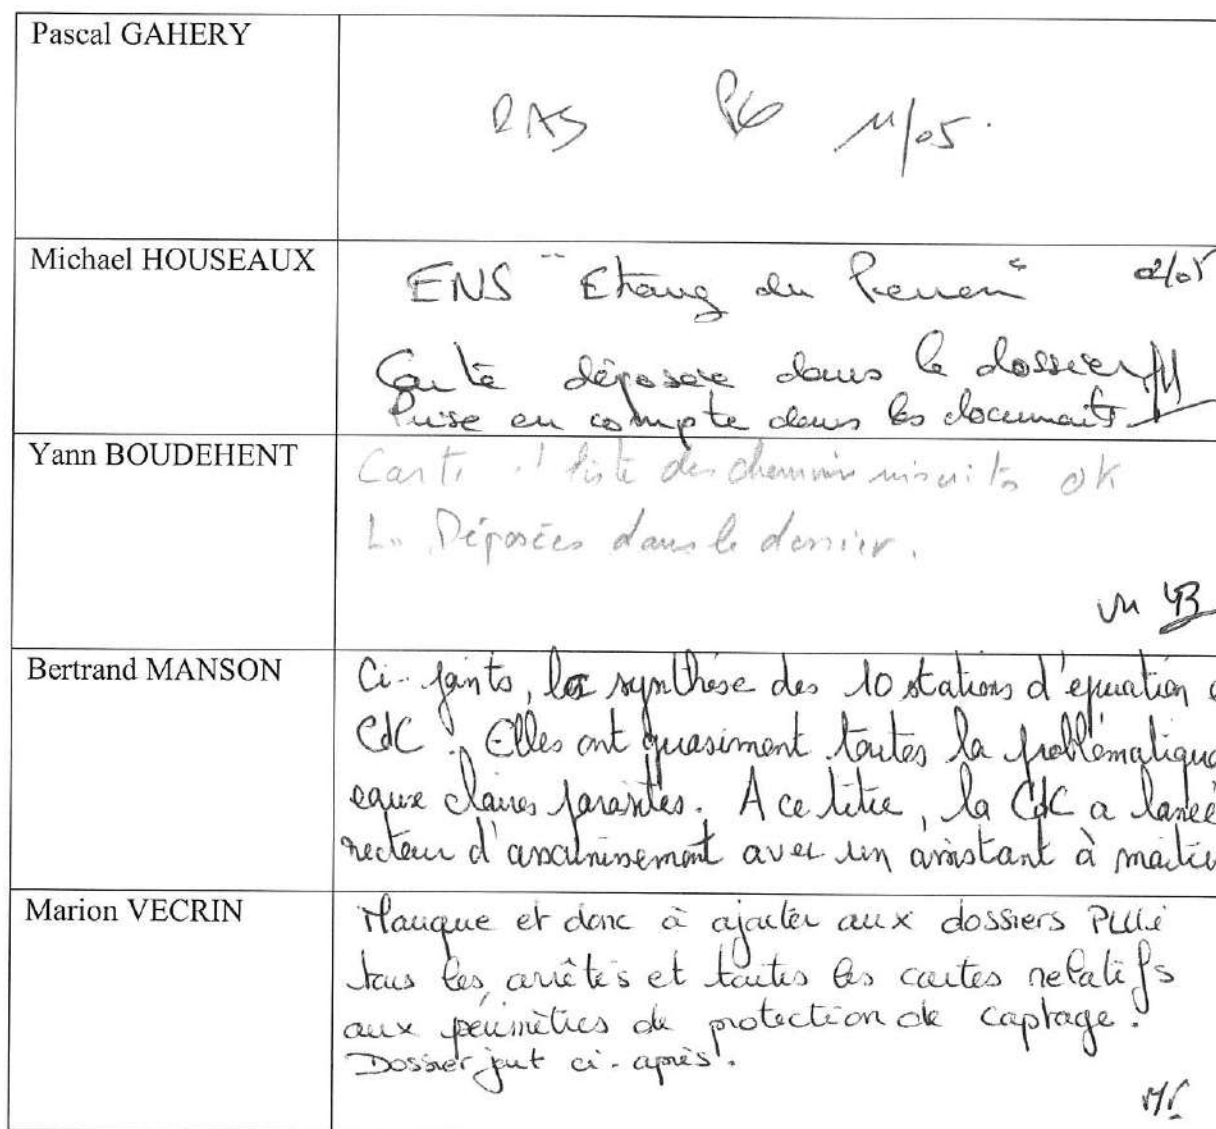 Pascal GAHERY
RAS PG 11/05.
Michael HOUSEAUX
ENS "Etang du "
Carte déposée dans le dossier
Prise en compte dans les documents.
Yann BOUDEHENT
Carte liste des chemins inscrits OK
Déposées dans le dossier.
Vu YB
Bertrand MANSON
Ci-joints, la synthèse des 10 stations d'épuration
CdC. Elles ont quasiment toutes la problématique
eaux claires parasites. A ce titre, la CdC a lancé
recteur d'assainissement avec un assistant à maitri
Marion VECRIN
Manque et donc à ajouter aux dossiers PLUi
tous les arrêtés et toutes les cartes relatifs
aux périmètres de protection de captage.
Dossier joint ci-après.
MV